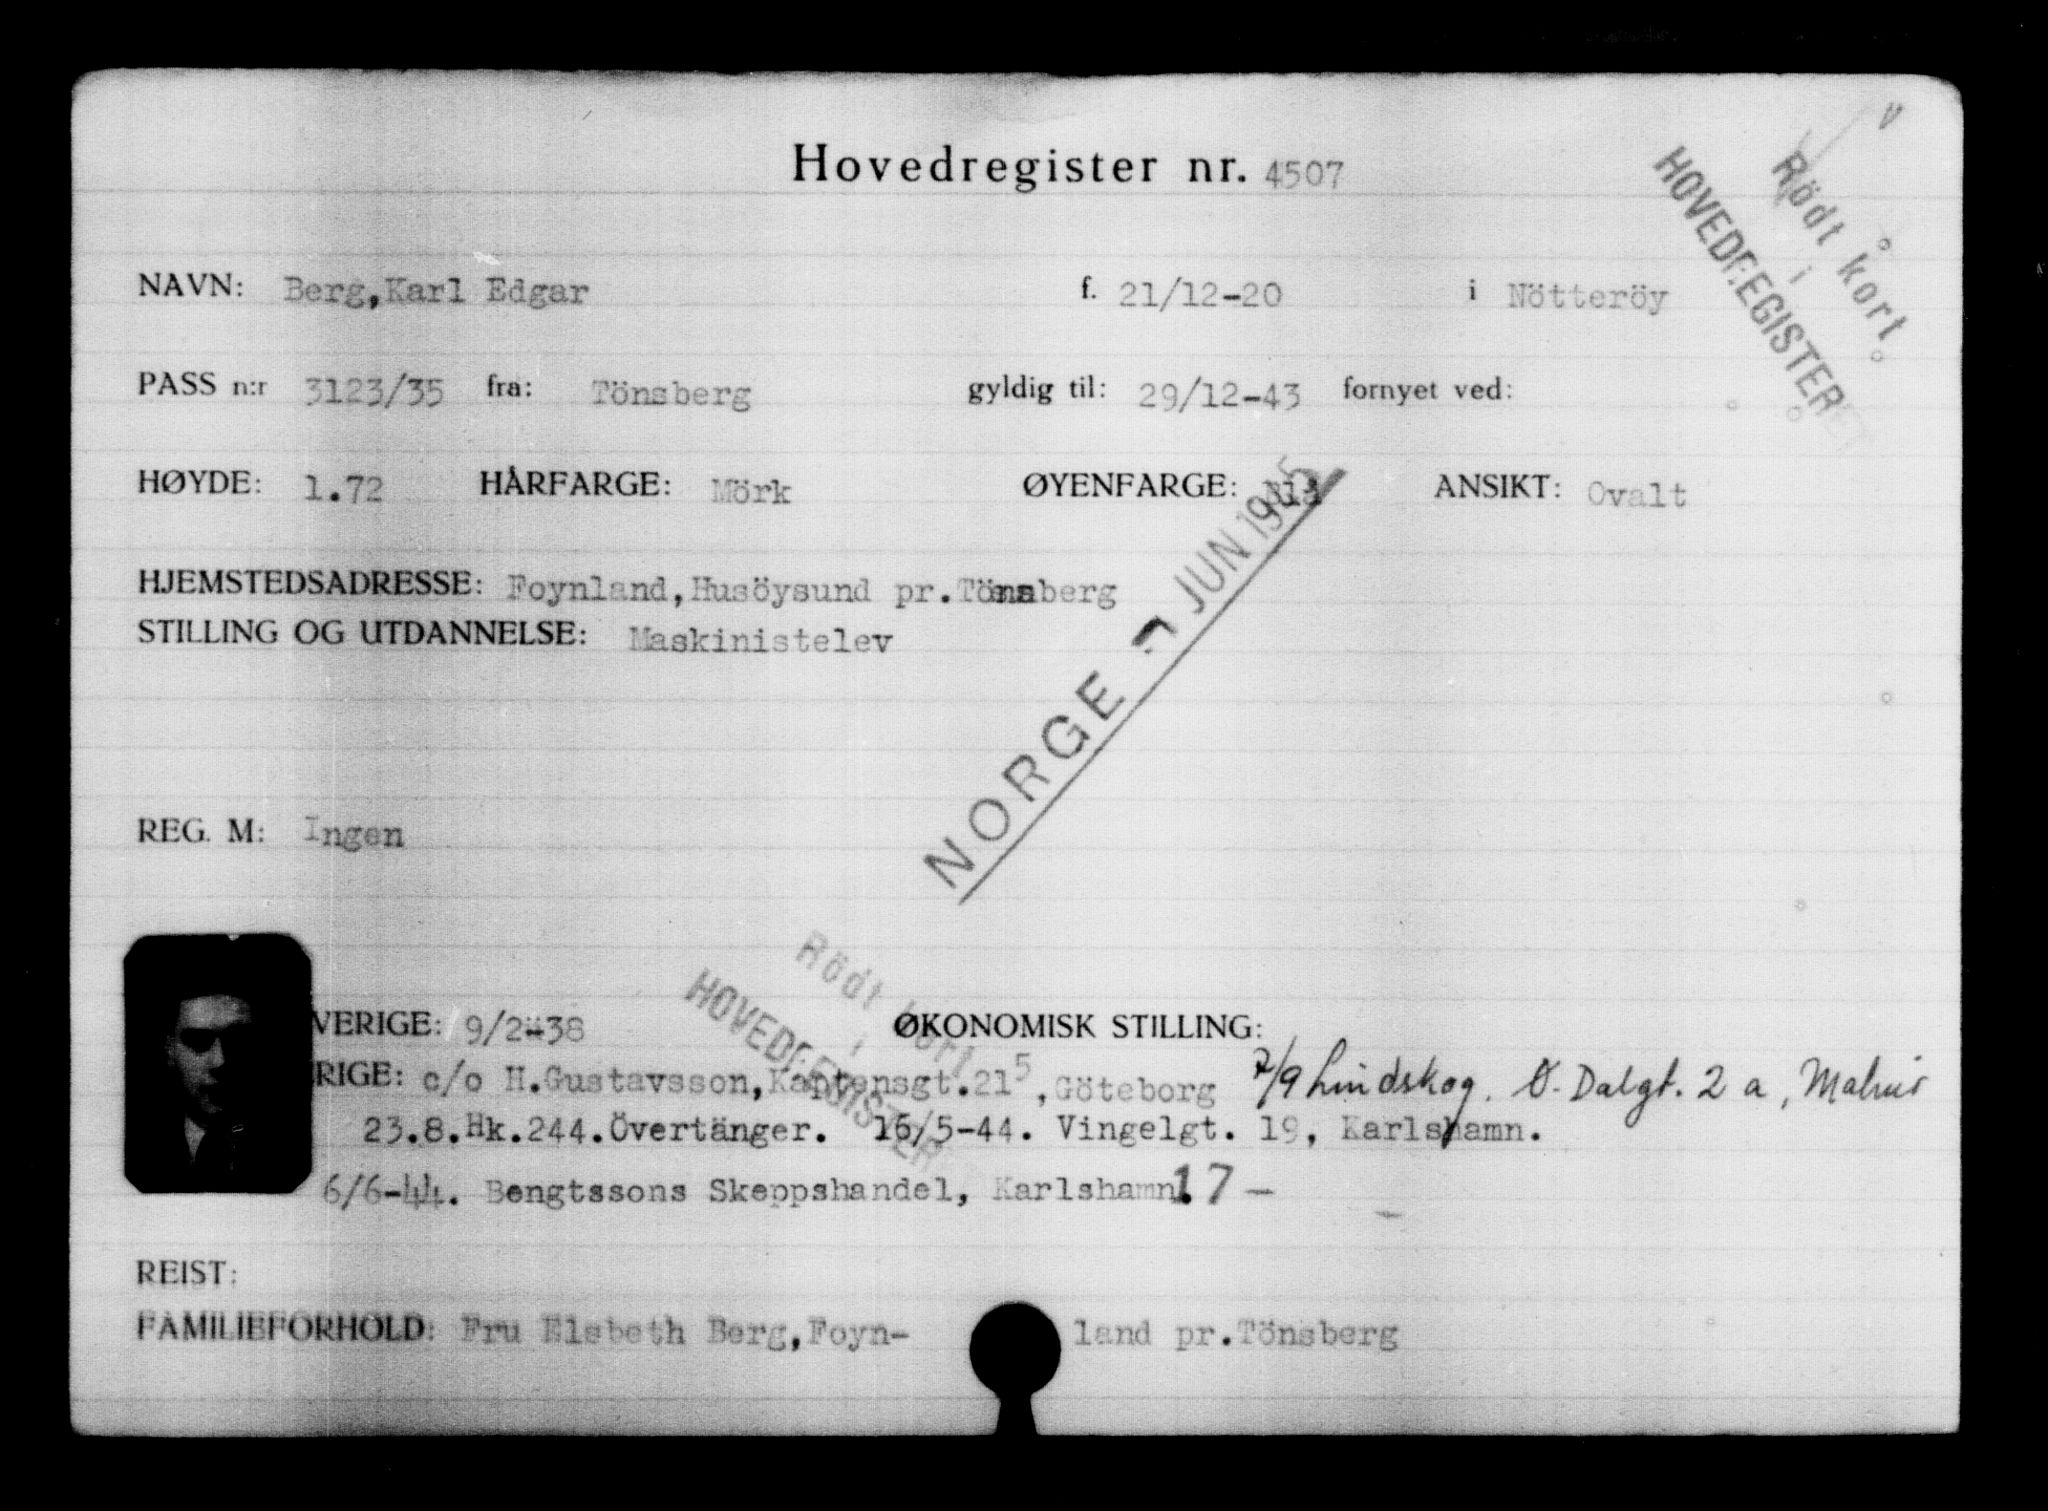 Hovedregister nr. 4507
Rödt kort
i
HOVEDREGISTERET
NAVN: Berg,Karl Edgar f. 21/12-20 i Nötteröy
PASS n:r 3123/35 fra: Tönsberg gyldig til: 29/12-43 fornyet ved:
HØYDE: 1.72 HÅRFARGE: Mörk ØYENFARGE: ANSIKT: Ovalt
HJEMSTEDSADRESSE: Foynland,Husöysund pr.Tönsberg
STILLING OG UTDANNELSE: Maskinistelev
NORGE 7 JUN 1945
REG. M: Ingen
Rödt kort
i
HOVEDREGISTER
VERIGE: 9/2-38 ØKONOMISK STILLING:
RIGE: c/o H.Gustavsson,Kaptensgt.21⁵,Göteborg 7/9 Lindskog. Ö. Dalgt. 2 a,
23.8.Hk.244.Övertänger. 16/5-44. Vingelgt. 19, Karlshamn.
6/6-44. Bengtssons Skeppshandel, Karlshamn. 17 -
REIST:
FAMILIEFORHOLD: Fru Elsbeth Berg,Foyn- land pr.Tönsberg